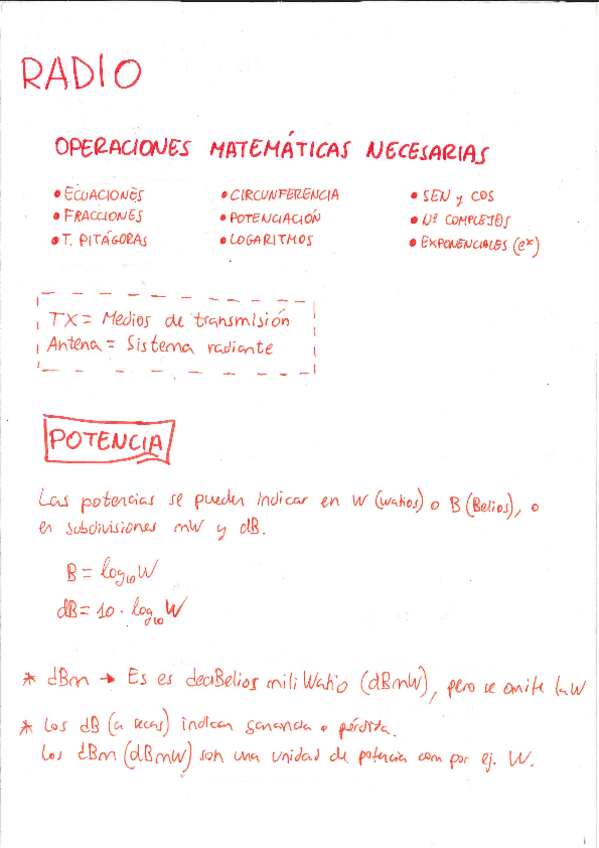 RADIO
OPERACIONES MATEMÁTICAS NECESARIAS
• ECUACIONES • CIRCUNFERENCIA • SEN y COS
• FRACCIONES • POTENCIACIÓN • Nº COMPLEJOS
• T. PITÁGORAS • LOGARITMOS • EXPONENCIALES (eˣ)
TX = Medios de transmisión
Antena = Sistema radiante
POTENCIA
Las potencias se pueden indicar en W (watios) o B (Belios), o
en subdivisiones mW y dB.
B = log₁₀ W
dB = 10 · log₁₀ W
* dBm → Es es deciBelios mili Watio (dBmW), pero se omite la W
* Los dB (a secas) indican ganancia o pérdida.
Los dBm (dBmW) son una unidad de potencia com por ej. W.
1